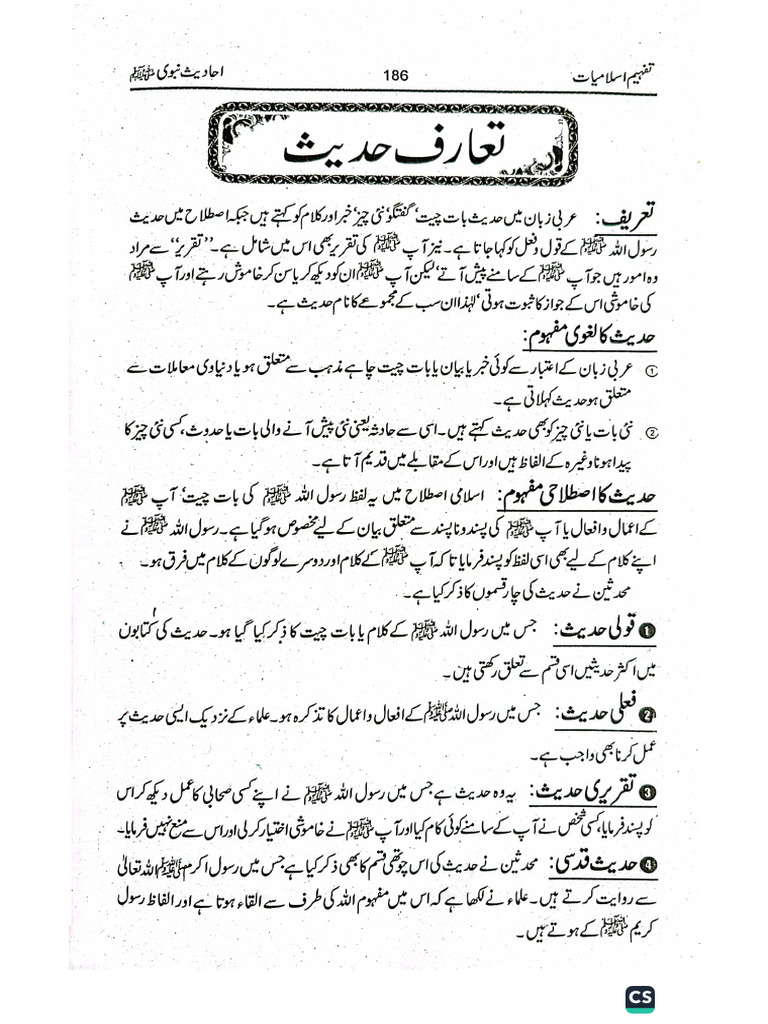 تفہیم اسلامیات 186 احادیث نبوی ﷺ
تعارف حدیث
تعریف: عربی زبان میں حدیث بات چیت‘ گفتگو‘ نئی چیز‘ خبر اور کلام کو کہتے ہیں جبکہ اصطلاح میں حدیث
رسول اللہ ﷺ کے قول و فعل کو کہا جاتا ہے۔ نیز آپ ﷺ کی تقریر بھی اس میں شامل ہے۔ ”تقریر“ سے مراد
وہ امور ہیں جو آپ ﷺ کے سامنے پیش آتے‘ لیکن آپ ﷺ ان کو دیکھ کر یا سن کر خاموش رہتے اور آپ ﷺ
کی خاموشی اس کے جواز کا ثبوت ہوتی‘ لہٰذا ان سب کے مجموعے کا نام حدیث ہے۔
حدیث کا لغوی مفہوم:
① عربی زبان کے اعتبار سے کوئی خبر یا بیان یا بات چیت چاہے مذہب سے متعلق ہو یا دنیاوی معاملات سے
متعلق ہو حدیث کہلاتی ہے۔
② نئی بات یا نئی چیز کو بھی حدیث کہتے ہیں۔ اسی سے حادثہ یعنی نئی پیش آنے والی بات یا حدوث، کسی نئی چیز کا
پیدا ہونا وغیرہ کے الفاظ ہیں اور اس کے مقابلے میں قدیم آتا ہے۔
حدیث کا اصطلاحی مفہوم: اسلامی اصطلاح میں یہ لفظ رسول اللہ ﷺ کی بات چیت‘ آپ ﷺ
کے اعمال و افعال یا آپ ﷺ کی پسند و ناپسند سے متعلق بیان کے لیے مخصوص ہو گیا ہے۔ رسول اللہ ﷺ نے
اپنے کلام کے لیے بھی اسی لفظ کو پسند فرمایا تا کہ آپ ﷺ کے کلام اور دوسرے لوگوں کے کلام میں فرق ہو۔
محدثین نے حدیث کی چار قسموں کا ذکر کیا ہے۔
❶ قولی حدیث: جس میں رسول اللہ ﷺ کے کلام یا بات چیت کا ذکر کیا گیا ہو۔ حدیث کی کتابوں
میں اکثر حدیثیں اسی قسم سے تعلق رکھتی ہیں۔
❷ فعلی حدیث: جس میں رسول اللہ ﷺ کے افعال و اعمال کا تذکرہ ہو۔ علماء کے نزدیک ایسی حدیث پر
عمل کرنا بھی واجب ہے۔
❸ تقریری حدیث: یہ وہ حدیث ہے جس میں رسول اللہ ﷺ نے اپنے کسی صحابی کا عمل دیکھ کر اس
کو پسند فرمایا، کسی شخص نے آپ کے سامنے کوئی کام کیا اور آپ ﷺ نے خاموشی اختیار کر لی اور اس سے منع نہیں فرمایا۔
❹ حدیث قدسی: محدثین نے حدیث کی اس چوتھی قسم کا بھی ذکر کیا ہے جس میں رسول اکرم ﷺ اللہ تعالیٰ
سے روایت کرتے ہیں۔ علماء نے لکھا ہے کہ اس میں مفہوم اللہ کی طرف سے القاء ہوتا ہے اور الفاظ رسول
کریم ﷺ کے ہوتے ہیں۔
CS